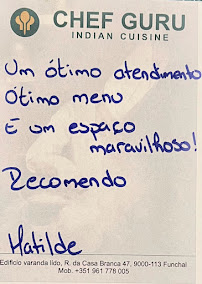 CHEF GURU
INDIAN CUISINE
Um ótimo atendimento
Ótimo menu
E um espaço
maravilhoso!
Recomendo
Matilde
Edifício varanda lido, R. da Casa Branca 47, 9000-113 Funchal
Mob. +351 961 778 005